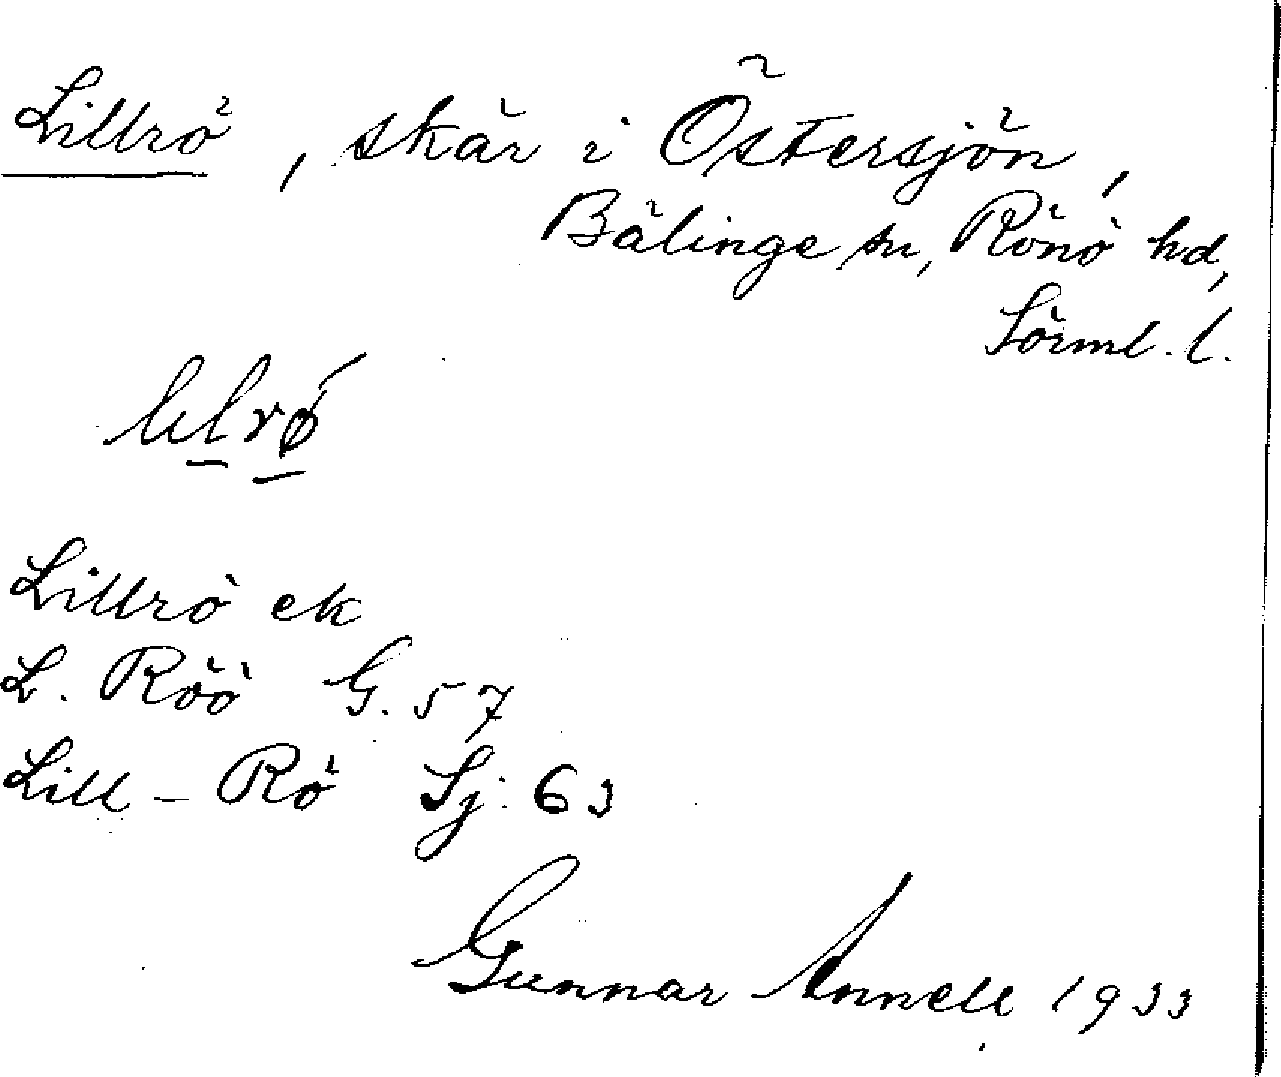 Lillrö, skär i Östersjön,
Bälinge sn, Rönö hd,
Sörml. l.
Lillrö ek
L. Röö G. 57
Lill-Rö Sj. 63
Gunnar Annell 1933